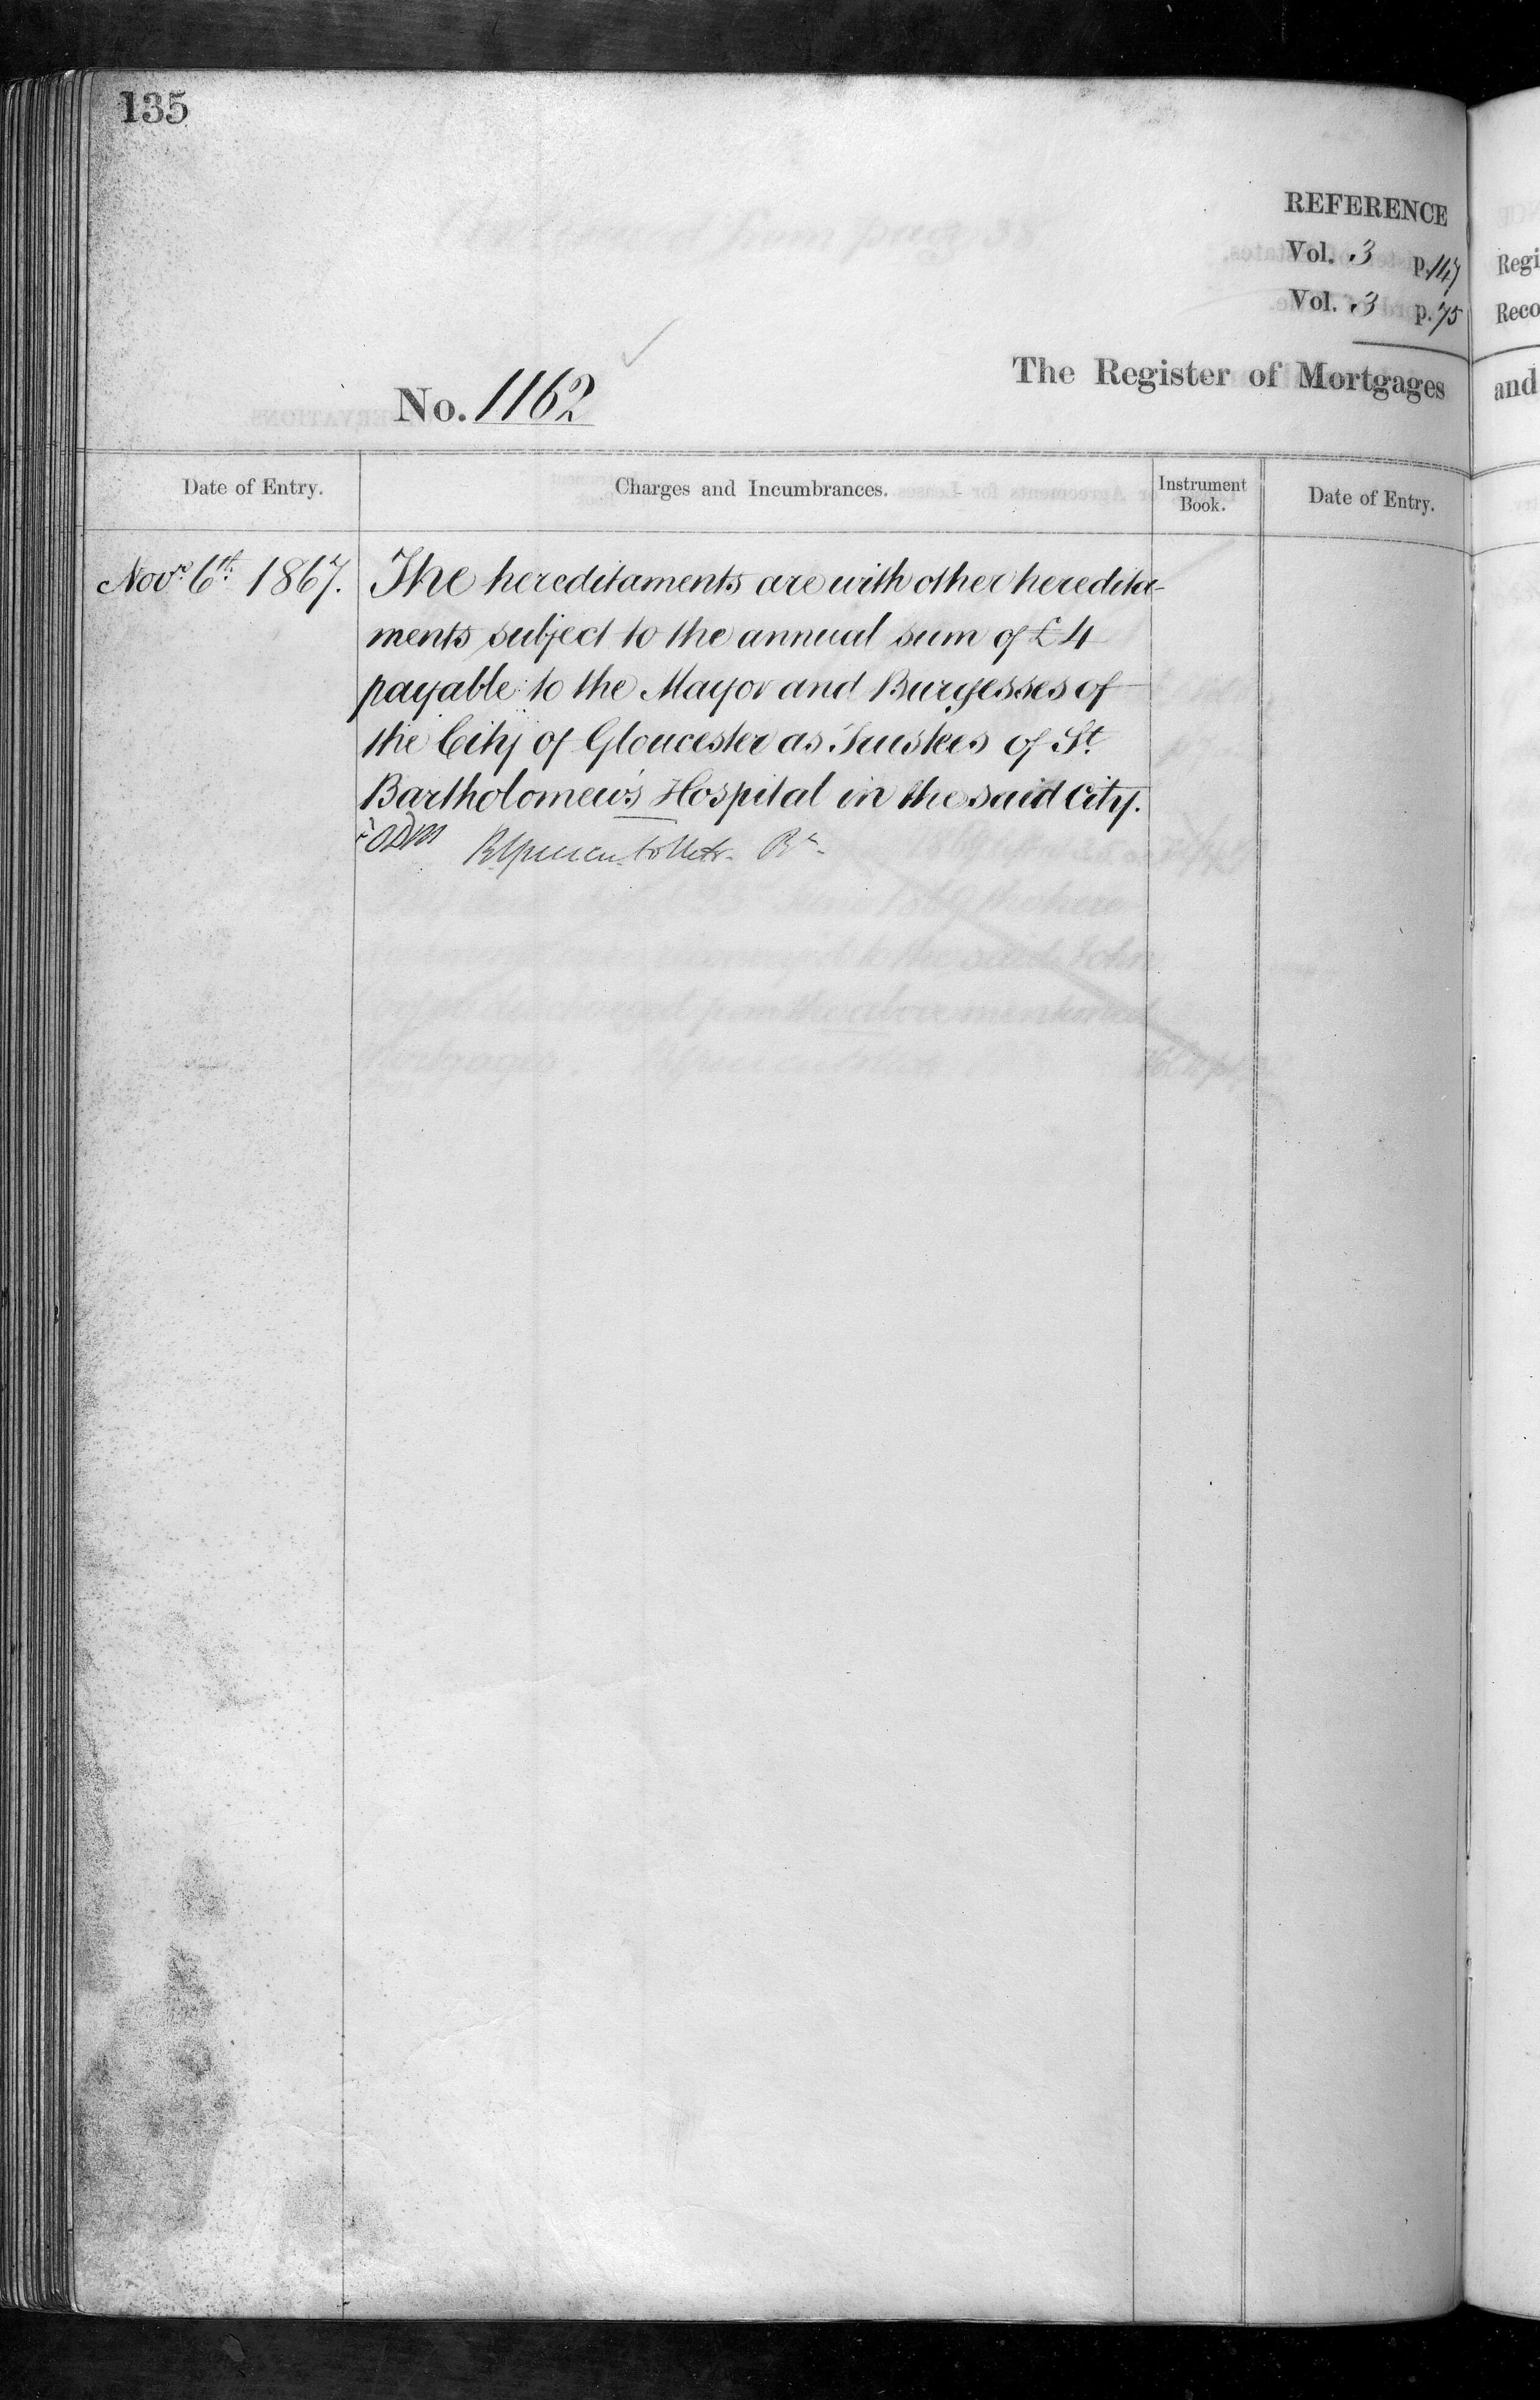 135
REFERENCE
Vol. 3 p. 147
Vol. 3 p. 75
The Register of Mortgages
No. 1162
Date of Entry.
Charges and Incumbrances.
Instrument Book.
Date of Entry.
Novr. 6th. 1867.
The hereditaments are with other heredita-
ments subject to the annual sum of £4
payable to the Mayor and Burgesses of
the City of Gloucester as Trustees of St.
Bartholomew's Hospital in the said City.
Regi
Reco
and